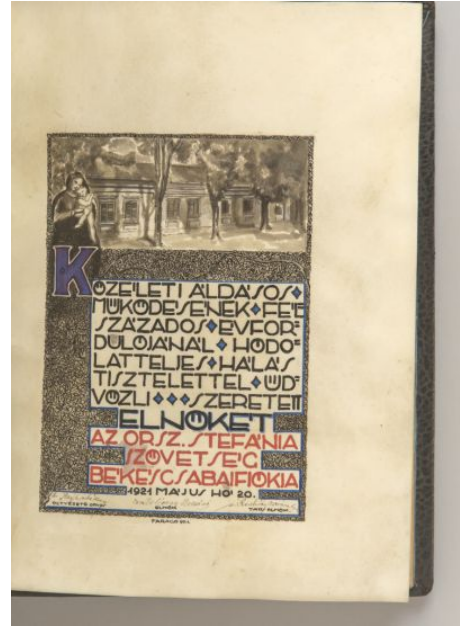 KÖZÉLETI ÁLDÁSOS
MŰKÖDÉSÉNEK FÉL
SZÁZADOS ÉVFOR=
DULÓJÁNÁL HÓDO=
LATTELJES HÁLÁS
TISZTELETTEL ÜD=
VÖZLI SZERETETT
ELNÖKÉT
AZ ORSZ. STEFÁNIA
SZÖVETSÉG
BÉKÉSCSABAI FIÓKJA
1921 MÁJUS HÓ 20.
ELNÖK